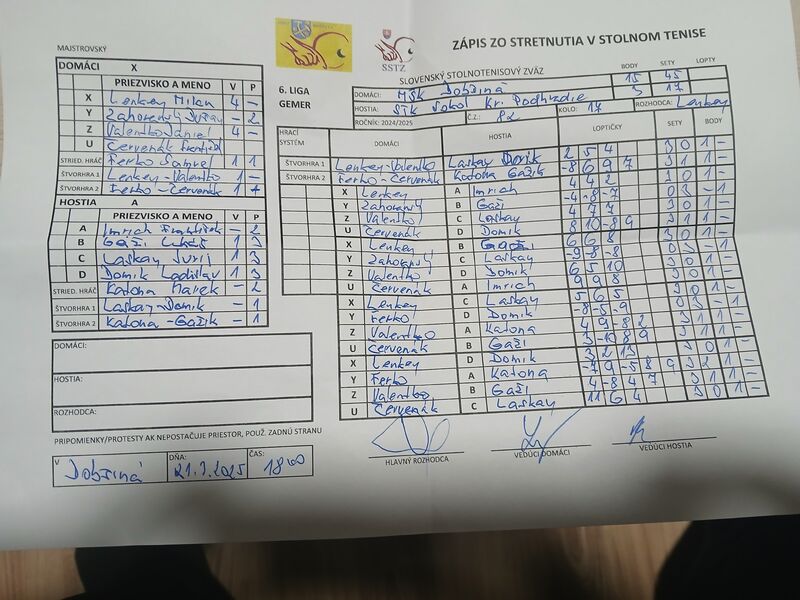 ZÁPIS ZO STRETNUTIA V STOLNOM TENISE
MAJSTROVSKÝ
SSTZ
SLOVENSKÝ STOLNOTENISOVÝ ZVÄZ
BODY SETY LOPTY
6. LIGA
GEMER
DOMÁCI: MŠK Dobšiná 15 45
HOSTIA: STK Sokol Kr. Podhradie 3 17
ROČNÍK: 2024/2025 Č.Z.: 82 KOLO: 17 ROZHODCA: Lenkey
DOMÁCI X
PRIEZVISKO A MENO V P
X Lenkey Milan 4 –
Y Zahorenský – 2
Z Valentko Daniel 4 –
U Červenák
STRIED. HRÁČ Ferko Samuel 1 1
ŠTVORHRA 1 Lenkey-Valentko 1 –
ŠTVORHRA 2 Ferko-Červenák 1
HOSTIA A
PRIEZVISKO A MENO V P
A Imrich František – 2
B Gaži Lukáš 1 3
C Laskay Jurij 1 3
D Domik Ladislav 1 3
STRIED. HRÁČ Katona Marek – 2
ŠTVORHRA 1 Laskay-Domik – 1
ŠTVORHRA 2 Katona-Gažik – 1
HRACÍ SYSTÉM DOMÁCI HOSTIA LOPTIČKY SETY BODY
ŠTVORHRA 1 Lenkey-Valentko Laskay Domik 2 5 4 3 0 1 –
ŠTVORHRA 2 Ferko-Červenák Katona Gažik -8 6 9 7 3 1 1 –
X Lenkey A Imrich 4 4 2 3 0 1 –
Y Zahorenský B Gaži -4 -8 -7 0 3 – 1
Z Valentko C Laskay 4 7 7 3 1 –
U Červenák D Domik 8 10 -8 9 3 1 1 –
X Lenkey B Gaži 6 6 8 3 0 1 –
Y Zahorenský C Laskay -9 -8 -8 0 3 – 1
Z Valentko D Domik 6 5 10 3 0 1 –
U Červenák A Imrich 9 9 8 3 0 1 –
X Lenkey C Laskay 5 6 5 3 0 1 –
Y Ferko D Domik -8 -8 -9 0 3 – 1
Z Valentko A Katona 4 9 -8 2 3 1 1 –
U Červenák B Gaži 3 -10 8 9 3 1 1 –
X Lenkey D Domik 3 2 13 3 0 1 –
Y Ferko A Katona -7 9 -5 8 9 3 2 1 –
Z Valentko B Gaži 4 -8 4 7 3 1 1 –
U Červenák C Laskay 11 6 4 3 0 1 –
DOMÁCI:
HOSTIA:
ROZHODCA:
PRIPOMIENKY/PROTESTY AK NEPOSTAČUJE PRIESTOR, POUŽ. ZADNÚ STRANU
V Dobšiná DŇA: 21.3.2025 ČAS: 18 00
HLAVNÝ ROZHODCA VEDÚCI DOMÁCI VEDÚCI HOSTIA